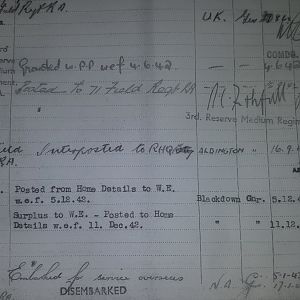 Field Regt R.A.
U.K.
COMDR.
Reserve
Medium
Granted W.P.P wef 4.6.42. — — 4.6.42
Posted to 71 Field Regt RA
"
3rd. Reserve Medium Regim
Interposted to RHQ ALDINGTON " 16.9.
RA.
Posted from Home Details to W.E.
w.e.f. 5.12.42. Blackdown Gar. 5.12.
Surplus to W.E. - Posted to Home
Details w.e.f. 11. Dec.42. " " 11.12
Embarked for service overseas
DISEMBARKED
N.A.